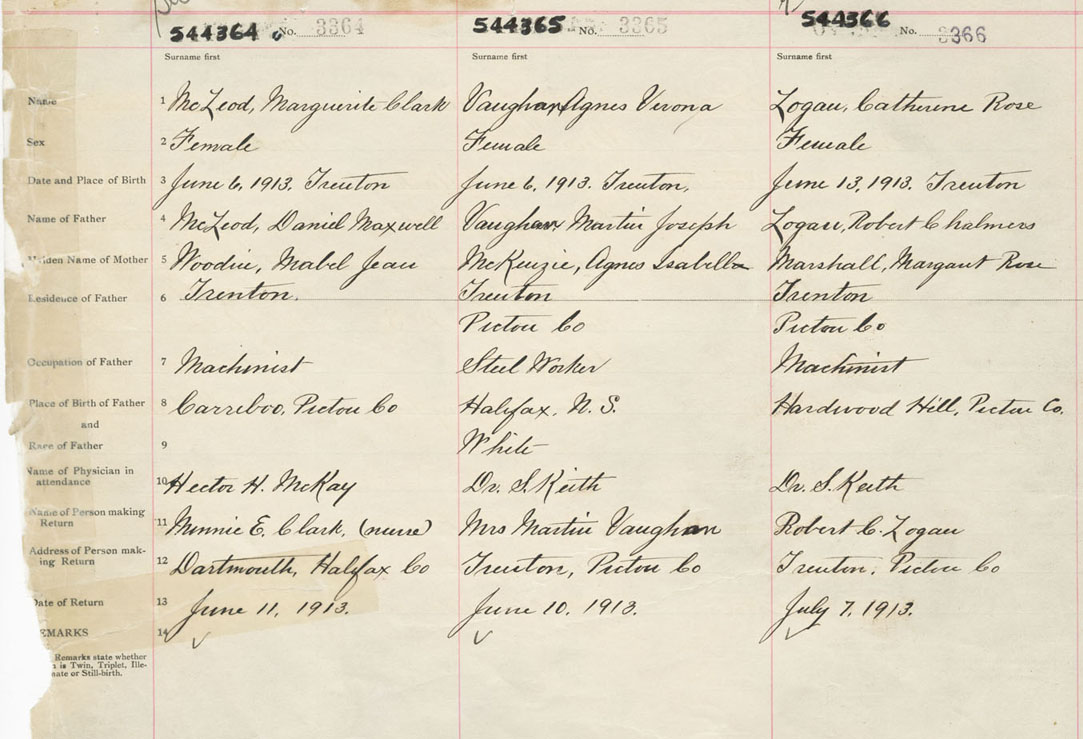 544364 No. 3364 544365 No. 3365 544366 No. 3366
Surname first Surname first Surname first
Name 1 McLeod, Marguerite Clark Vaughan, Agnes Verona Logan, Catherene Rose
Sex 2 Female Female Female
Date and Place of Birth 3 June 6, 1913. Trenton June 6, 1913. Trenton, June 13, 1913. Trenton
Name of Father 4 McLeod, Daniel Maxwell Vaughan Martin Joseph Logan, Robert Chalmers
Maiden Name of Mother 5 Woodin, Mabel Jean McKenzie, Agnes Isabella Marshall, Margaut Rose
Residence of Father 6 Trenton. Trenton Trenton
Pictou Co Pictou Co
Occupation of Father 7 Machinist Steel Worker Machinist
Place of Birth of Father 8 Carreboo, Pictou Co Halifax, N. S. Hardwood Hill, Pictou Co.
and
Race of Father 9 White
Name of Physician in
attendance 10 Hector H. McKay Dr. S. Keith Dr. S. Keith
Name of Person making
Return 11 Minnie E. Clark, (nurse) Mrs Martin Vaughan Robert C. Logan
Address of Person mak-
ing Return 12 Dartmouth, Halifax Co Trenton, Pictou Co Trenton, Pictou Co
Date of Return 13 June 11, 1913. June 10, 1913. July 7, 1913.
EMARKS 14
Remarks state whether
is Twin, Triplet, Ille-
nate or Still-birth.